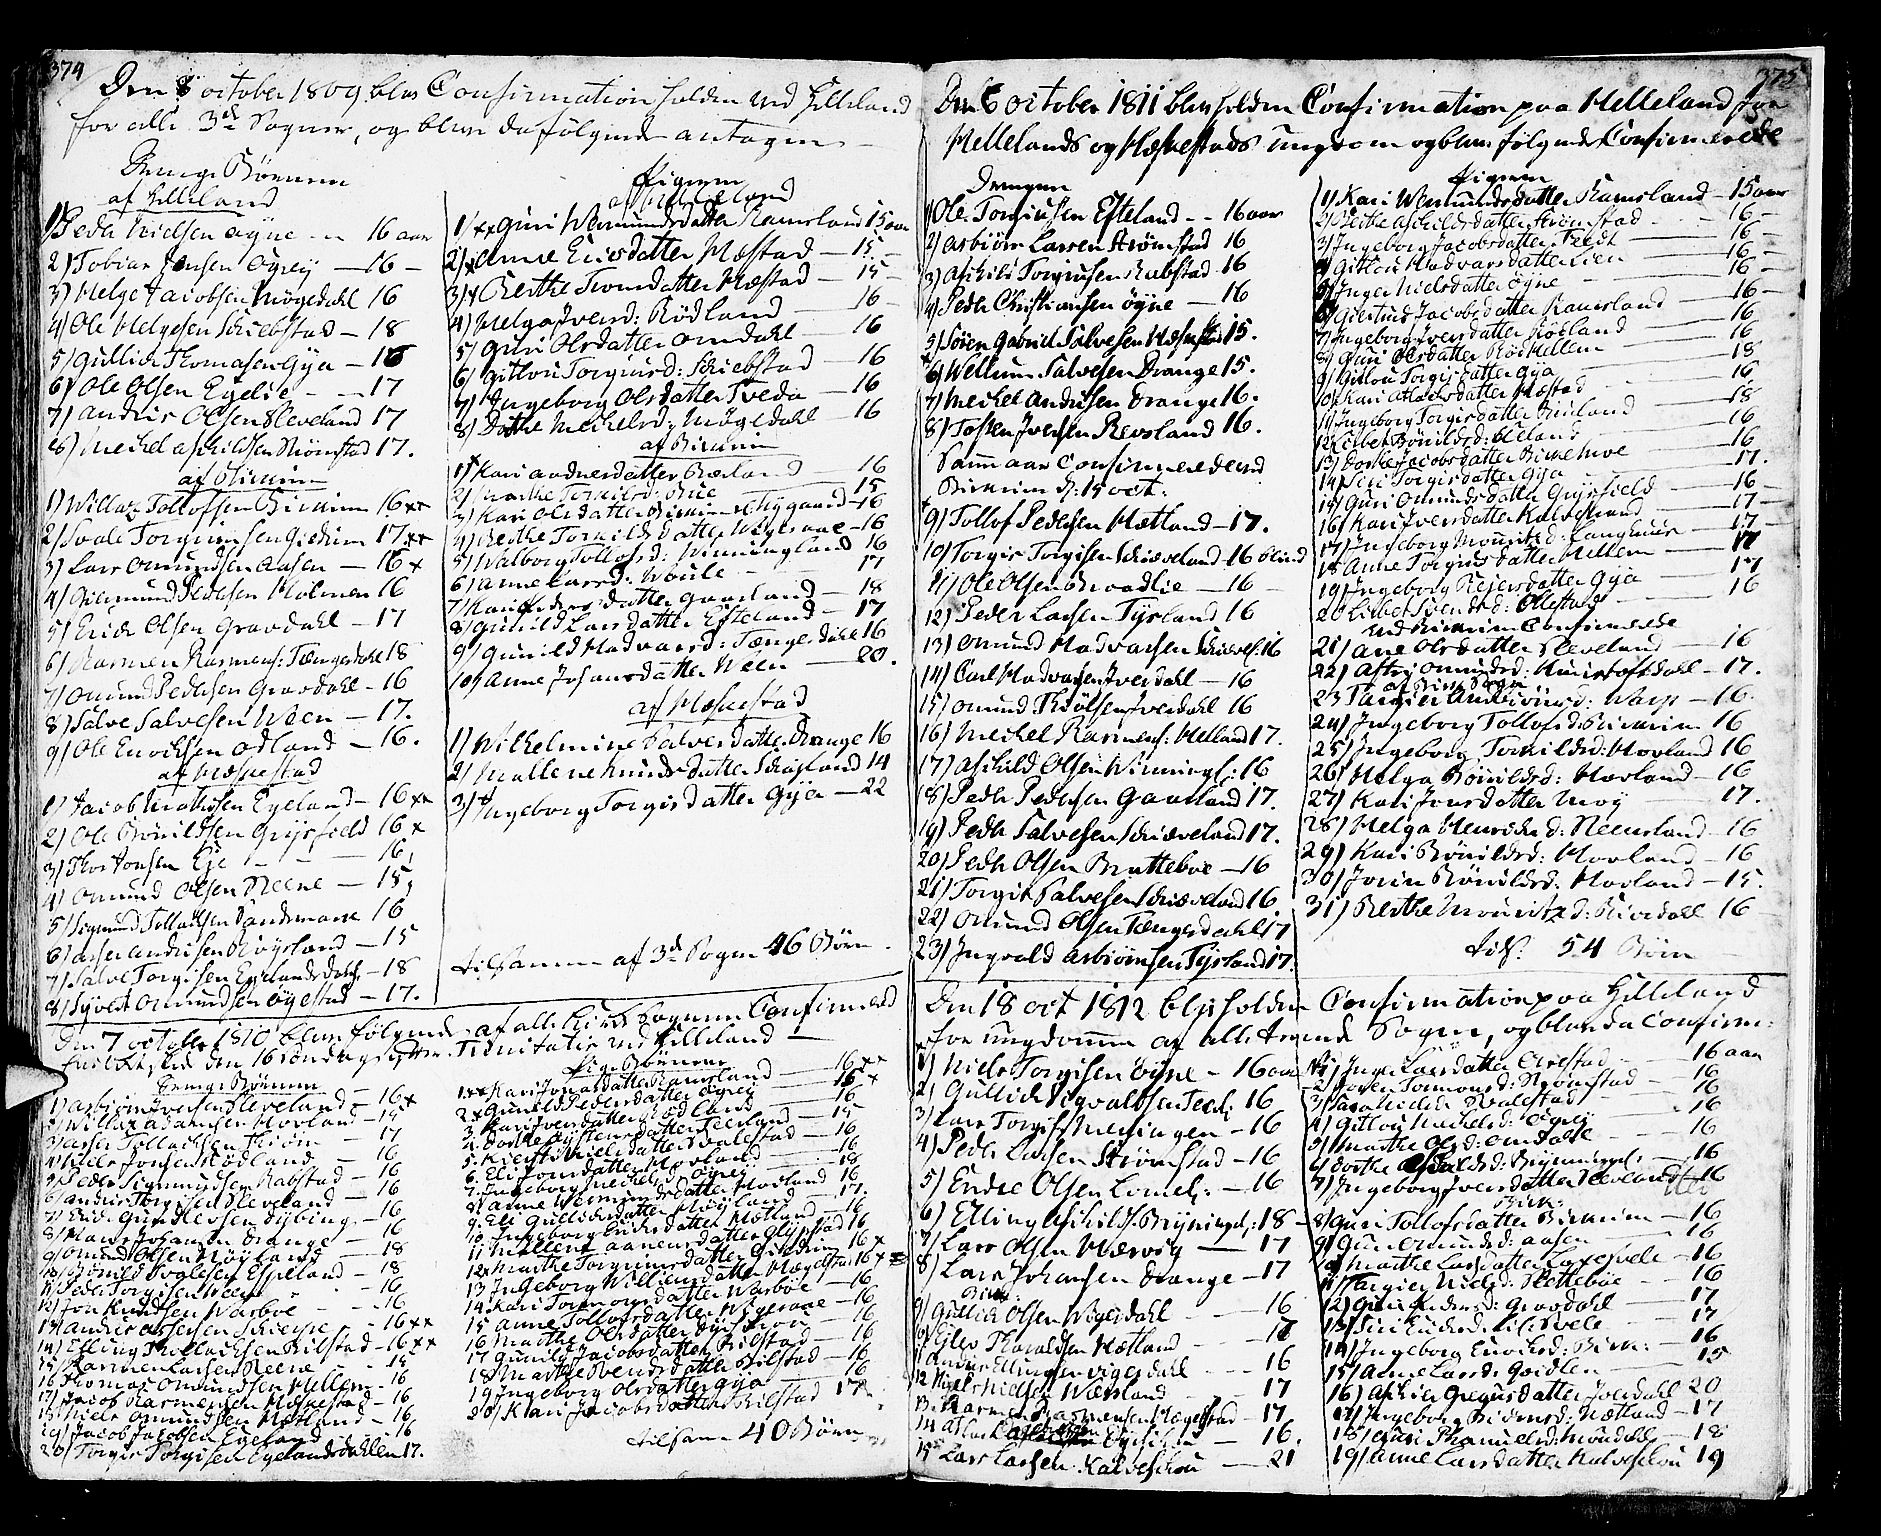 374
Den 8 october 1809 blev Confirmation holden ved Helleland
for alle 3de Sogner, og bleve da følgende antagen
Drenge Børnene
af Helleland
1) Peder Nielsen øyne 16 aar
2) Tobias Jonsen Ogrey 16
3) Helge Jacobsen Møgedahl 16
4) Ole Helgesen Schiebstad 18
5) Gullich Thomasen Gya 16
6) Ole Olsen Egelie 17
7) Andris Olsen Sleveland 17
8) Mechel aschildsen Strømstad 17.
af Birkrim
1) Willaz Tollofsen Birkrim 16 xx
2) Svale Torgrimsen Giedrim 17 xx
3) Lars Omundsen Aasen 16 x
4) Pedersen Holmen 16
5) Erich Olsen Gravdahl 17
6) Rasmen Rasmens: Tængesdahl 18
7) Omund Pedersen Gravdahl 16
8) Salve Salvesen Ween 17.
9) Ole Enochsen Odland 16.
af Hæskestad
1) Jacob Mathisen Egeland 16 xx
2) Ole Bønildsen Grysfield 16 x
3) Thor Jonsen Eje 16
4) Omund Olsen Steene 15
5) Sigmund Tollachsen Sandsmarc 16
6) Asser Andrisen Røysland 15
7) Salve Torgisen Egelands dahl 18
8) Syvert Omundsen øgestad 17.
Pigerne
af Helleland
1) xx Guri Wermundsdatter Ramsland 15 aar
2) x Anne Ericsdatter Mæstad 15
3) x Berthe Tronsdatter Mæstad 15
4) Helga Iversd: Rødland 16
5) Guri Olsdatter Omdahl 16
6) Gitlou Torgiusd: Schiebstad 16
7) Ingeborg Olsdatter Tveda 16
8) Dorthe Mechelsd: Møgedahl 16
af Birkrim
1) x Kari Andersdatter Bierland 16
2) Marthe Torkildsd: Bue 15
3) Kari Olsdatter Birkrim Nygaard 16
4) Berthe Torkildsdatter Wigesaae 16
5) Walborg Tollofsd: Winningland 16
6) Anne Larsd: Woule 17
7) Kari Andersdatter Gaarland 18
8) Gunild Larsdatter Efteland 17
9) Gunild Hadvarsd: Tængesdahl 16
10) Anne Johansdatter Ween 20.
af Hæskestad
1) Wilhelmine Salvesdatter Drange 16
2) Mallene Knudsdatter Schøyland 14
3) Ingeborg Torgisdatter Gya 22
tilsamen af 3de Sogne 46 Børn
Den 7 october 1810 bleve følgende af alle tvende Sogner Confirmered
den 16 Søndag efter Trinitatis ved Helleland
Drenge Børnene
1) Asbiørn Iversen Sleveland 16 x
2) Willaz Adamsen Hovland 15
3) Asser Tollachsen 17
4) Niels Jonsen Rødland 16
5) Peder Sigmundsen Rabstad 16
6) Andris Torgisen Sleveland 16
7) Eric Gundersen Dybing 16
8) Hans Johansen Drange 16
9) Omund Olsen Høyland 18
10) Bønild Svalesen Espeland 18
11) Peder Torgisen Ween 16
12) Jon Knudsen Warboe 16
13) Andris Assersen 16 xx
14) Elling Thollachsen Bilstad 16 xx
15) Rasmen Larsen Steene 15
16) Thomas Omundsen Hellem 16
17) Jacob Rasmensen Hæskestad 16
18) Niels Omundsen Hetland 16
19) Jacob Jacobsen Egeland 16
20) Torgis Torgisen Egelandsdahlen 17.
Pige Børnene
1 xx Kari Jonasdatter Ramsland 16 xx
2 x Gunild Pedersdatter Ogrey 16 x
3. Kari Iversdatter Rødland 16
4. Dorthe Øystensdatter Teeland 15
5. Kiersti Nielsdatter Svalestad 16
6. Eli Jonsdatter Hovland 16
7. Ingeborg Mechelsd Ogrey 18
8. Anne Wermundsdatter Hovland 16
9. Eli Gullichsdatter Høyland 17.
10. Ingeborg Endresdatter Mætland 16
11 Mallene Aanensdatter Glypstad 16
12 x Marthe Torgrimsdatter Giedrim 16 x
13 Ingeborg Willumsdatter Hægelstad 16 xx
14. Kari Tormodsdatter Warboe 16
15 Anne Tollofsdatter Wigesaae 16
16 Marthe Olsdatter 16
17 Gunild Jacobsdatter Bilstad 16
18 Marthe Svendsdatter Bilstad 16
19 Ingeborg Olsdatter Gya 16
20) Kari Jacobsdatter Bilstad 17
tilsamen 40 Børn
375
Den 6 october 1811 blev holden Confirmation paa Helleland for
Hellelands og Hæskestads ungdom og bleve følgende Confirmerede
Drengene
1) Ole Torgiusen Efteland 16 aar
2) Asbiørn Larsen Strømstad 16
3) Aschild Torgiusen Rabstad 16
4) Peder Christiansen øyne 16
5) Søren Gabriel Salvesen Hæskestad 15.
6) Wellum Salvesen Drange 15.
7) Mechel Andrisen Drange 16.
8) Tosten Iversen Revsland 16.
Samme aar Confirmerede ved
Birkrim d: 15 oct:
9) Tollof Pedersen Hætland 17.
10) Torgis Torgisen Schieveland 16 blind
11) Ole Olsen Braadlie 16
12) Peder Larsen Tysland 16
13) Omund Hadvarsen Schievel: 16
14) Carl Hadvarsen Iversdahl 16
15) Omund Thiølsen Iversdahl 16
16) Mechel Rasmens: Helland 17.
17) Aschild Olsen Winningl: 16
18) Peder Pedersen Gaarland 17.
19) Peder Salvesen Schieveland 17.
20) Peder Olsen Bratteboe 16
21) Torgis Salvesen Schieveland 16
22) Omund Olsen Tængesdahl 17
23) Ingvald Asbiørnsen Tysland 17.
Pigerne
1) Kari Wermundsdatter Ramsland 15 aar
2) Berthe Aschildsdatter Strømstad 16
3) Ingeborg Jacobsdatter Tvedt 16
4) Gitlou Hadvarsdatter Lien 16
5) Inger Nielsdatter øyne 16
6) Giertrud Jacobsdatter Ramsland 16
7) Ingeborg Iversdatter Rødland 16
8) Guri Olsdatter Hellem 16
9) Gitlou Torgisdatter Gya 18
10) Kari Aslachsdatter Mæstad 16
11) Ingeborg Torgisdatter Birkeland 18
12) Lisbet Bønildsd: Ueland 16
13) Dorthe Jacobsdatter Birkemoe 16
14) Siri Torgisdatter Gya 17.
15) Guri Omundsdatter Grysfield 16
16) Kari Iversdatter Kalveknud 17
17) Ingeborg Mouritzd: Langmuur 17
18) Anne Torgiusdatter Hellem 17
19) Ingeborg Rejersdatter Gya 17
20) Lisbet Svendsd: Ollestad 16
ved Birkrim Confirmerede
21) Ane Olsdatter Sleveland 16
22) Astri Omundsd: Christofsdahl 17.
af Birk: Sogn
23 Targier Ambiørnsd: Warp 16
24) Ingeborg Tollofsd: Birkrim 16
25) Ingeborg Torkildsd: Hovland 16
26) Helga Bønildsd: Hovland 16
27) Kari Jonsdatter Moy 17.
28) Helga Henrichsd: Steensland 16
29) Kari Bønildsd: Hovland 16
30) Jorin Bønildsd: Hovland 15.
31) Berthe Mouritzd: Birkedahl 16
tils: 54 Børn
Den 18 oct 1812 blev holden Confirmation paa Helleland
for ungdommen af alle trende Sogner, og bleve da Confirm:
1) Niels Torgisen øyne 16 aar
2) Gullich Sigvaldsen Teel: 16
3) Lars Torgils: Meeningen 16
4) Peder Larsen Strømstad 16
5) Endre Olsen Lomel: 16
6) Elling Aschilds: Brynningl: 18
7) Lars Olsen Hersvig 17
8) Lars Johansen Drange 17
Birk:
9) Gullich Olsen Wigesdahl 16
10) Ejlev Tharaldsen Hætland 17
11 Andris Ellingsen Vigesdahl 16
12 Niels Nielsen Wærsland 17
13. Rasmen Rasmensen Hægelstad 17
14 Aslach 16.
15 Lars Larsen Kalveschou 21
1) Inger Larsdatter Ørestad 16 aar
2) Joren Tormonsd: Strømstad 16
3) Sara Nielsd: Svalestad 16
4) Gitlou Mechelsd: Ogrey 16
5) Marthe Olsd: Omdahl 16
6) Dorthe d: Brynningl: 16
7) Ingeborg Iversdatter Sleveland 16
Birk:
8) Guri Tollofsdatter Birkrim 16
9) Guri Omundsd: Aasen 16
10) Marthe Larsdatter Laxesvele 16
11) Targier Nielsd: Sletteboe 16
12) Guri Andersd: Gravdahl 17
13) Siri Enochsd: Lilsvele 17
14) Ingeborg Enochsd: Birk: 16
15) Anne Larsd: Gridlen 15
16) Aschier Gregersdatter Iversdahl 20
17) Ingeborg Biørnsd: Nætland 17
18) Guri Phanuelsd: Nøvdahl 18
19) Anne Larsdatter Kalveschou 19